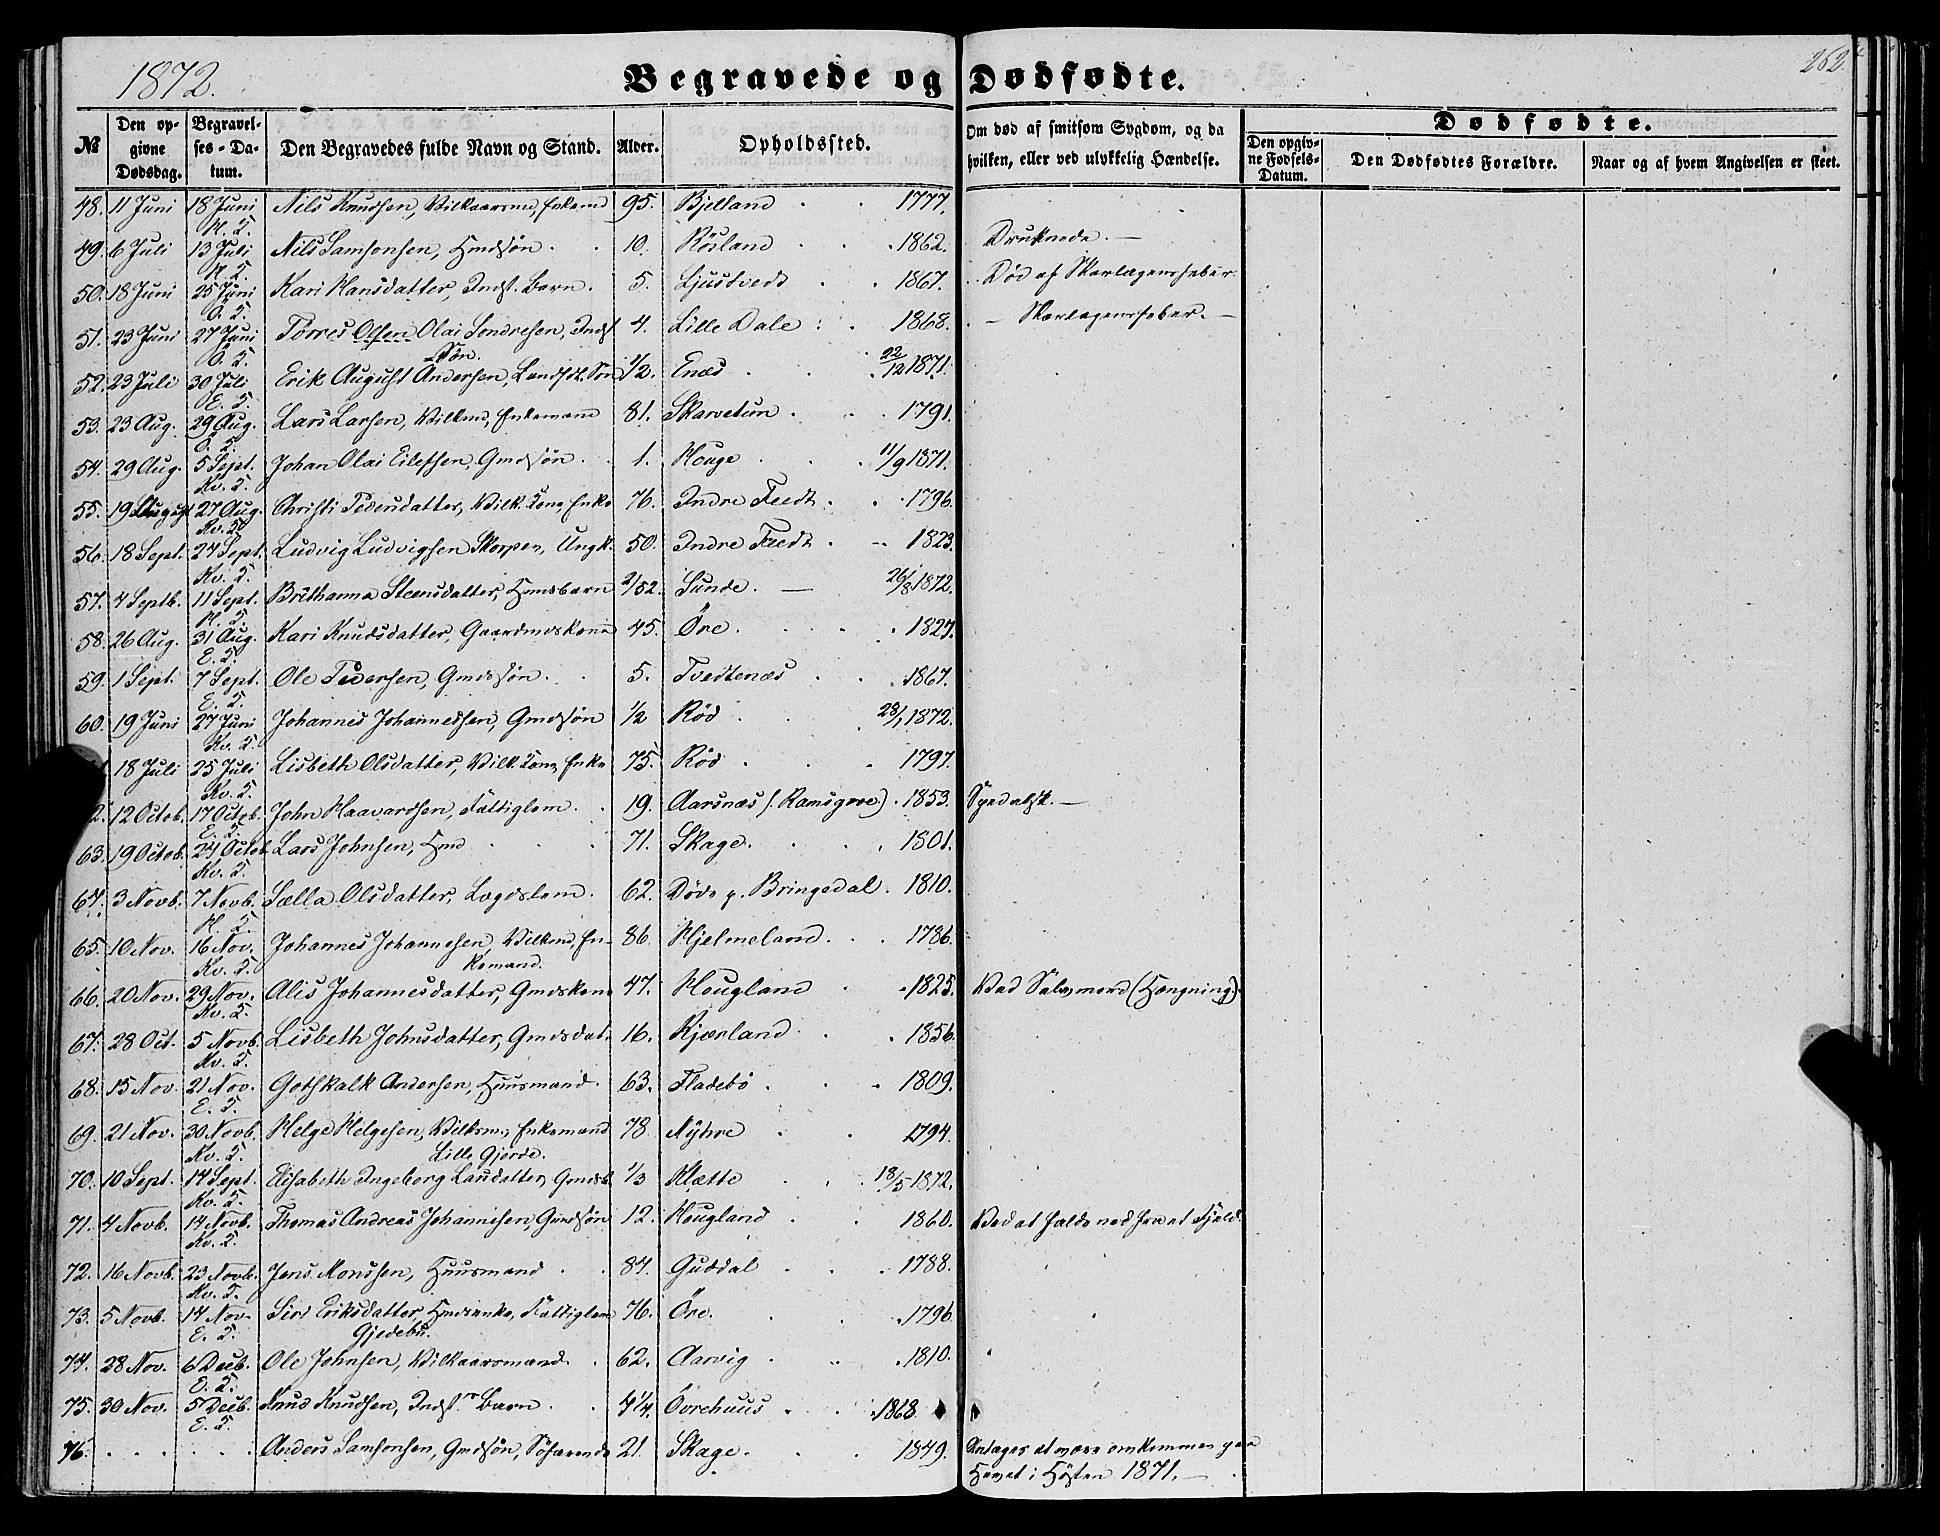 1872.
Begravede og Dødfødte.
262.
№
Den opgivne Dødsdag.
Begravelses-Datum.
Den Begravedes fulde Navn og Stand.
Alder.
Opholdssted.
Om død af smitsom Sygdom, og da hvilken, eller ved ulykkelig Hændelse.
Dødfødte.
Den opgivne Fødsels-Datum.
Den Dødfødtes Forældre.
Naar og af hvem Angivelsen er skeet.
48. 11 Juni 18 Juni Nils Knudsen, Vilkaarsmd, Enkemd 95. Bjelland 1777.
49. 6 Juli 13 Juli Nils Samsonsen, Hmdsøn 10. Røsland 1862. Druknede.
50. 18 Juni 25 Juni Kari Hansdatter, Indst. Barn. 5. Ljustvedt 1867. Død af Skarlagensfeber
51. 23 Juni 27 Juni Torres Olsen Olai Sondresen, Indst 4. Lille Dale 1868. Skarlagensfeber.
Søn.
52. 23 Juli 30 Juli Erik August Andersen, Søn 1/2. Enæs 22/12 1871.
53. 23 Aug. 29 Aug. Lars Larsen, Vilkmd, Enkemann 81. Skarvetun 1791.
54. 29 Aug. 5 Sept. Johan Olai Eilefsen, Gmdsøn 1. Houge 11/9 1871.
55. 19 August 27 Aug. Christi Pedersdatter, Vilk. Kone, Enke 76. Indre Tvedt 1796.
56. 18 Sept. 27 Sept. Ludvig Ludvigsen Skorpen, Ungk. 50. Indre Tvedt 1823.
57. 4 Septb. 11 Sept. Brithanna Steensdatter, Hmdsbarn 2/52. Sunde 26/8 1872.
58. 26 Aug. 31 Aug. Kari Knudsdatter, Gaardmdskone 45. Öre 1827.
59. 1 Sept. 7 Sept. Ole Pedersen, Gmdsøn 5. Tvedtenæs 1867.
60. 19 Juni 27 Juni Johannes Johannessen, Gmdsøn 1/2 Rød 28/1 1872.
18 Juli 25 Juli Lisbeth Olsdatter, Vilk. Kone, Enke 75. Rød 1797.
2. 12 Octob. 17 Octob. John Haavardsen, Fattiglem 19. Aarsnæs (Ramsgroe) 1853.
63. 19 Octob. 24 Octob. Lars Johnsen, Hmd 71. Skage 1801.
64. 3 Novb. 7 Novb. Sælla Olsdatter, Lægdslem. 62. Döve p. Bringedal 1810.
65. 10 Nov. 16 Nov. Johannes Johannesen, Vilkmd, En- 86. Hjelmeland 1786.
kemand.
66. 20 Nov. 29 Nov. Alis Johannesdatter, Gmdskone 47. Hougland 1825. Ved Selvmord (Hængning).
67. 28 Oct. 5 Novb. Lisbeth Johnsdatter, Gmdsdat. 16. Kjærland 1856.
68. 15 Nov. 21 Nov. Gotskalk Andersen, Huusmand 63. Fladebö 1809.
69. 21 Nov. 30 Novb. Helge Helgesen, Vilksm. Enkemand 78 Nyhre 1794.
Lille Gjerde.
70. 10 Sept. 14 Sept. Elisabeth Ingeborg Larsdatter, Gmdsb. 1/3 Klætte 18/5 1872.
71. 4 Novb. 14 Novb. Thomas Andreas Johannesen, Gmdsøn 12. Hougland 1860. Ved at falde ned fra et Fjeld.
72. 16 Novb. 23 Novb. Jens Monssen, Huusmand 84. Guddal 1788.
73. 5 Novb. 14 Nov. Siri Eriksdatter, Hmdsenke, Fattiglem 76. Öre. 1796
Gjedebu.
74. 28 Nov. 6 Decb. Ole Johnsen, Vilkaarsmand 62. Aarvig 1810.
75. 30 Nov. 5 Decb. Knud Knudsen, Indst. Barn 4 1/4. Övrehuus 1868
76. Anders Samsonsen, Gmdsøn, Söfarende 21. Skage. 1849. Antages at være omkommen paa
Havet i Høsten 1871.